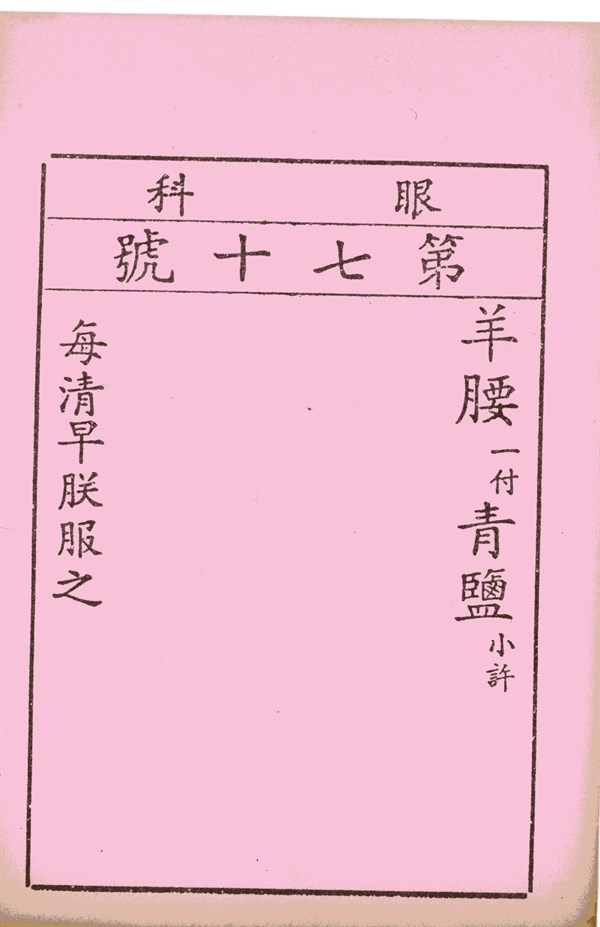 眼科
第七十號
羊腰一付青鹽小許
每清早朕服之